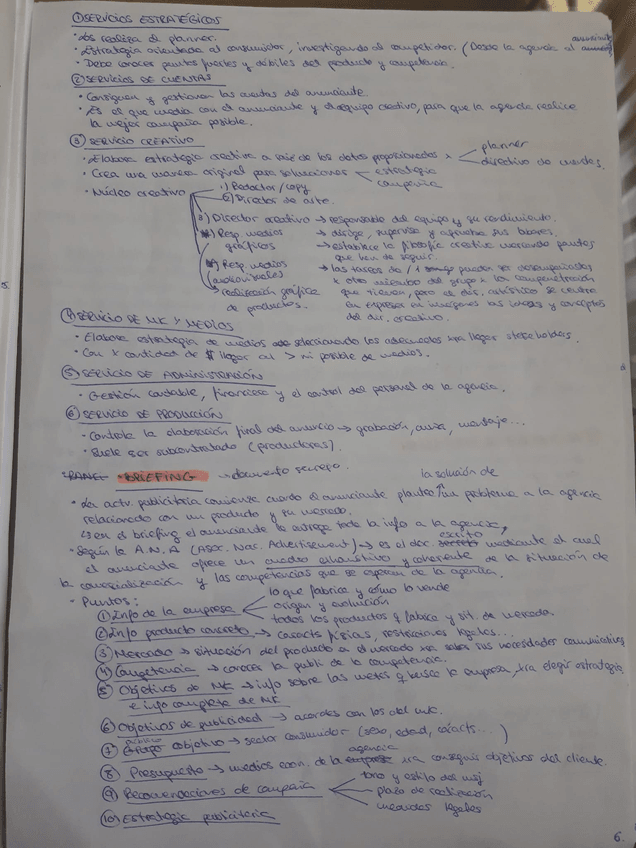 ① SERVICIOS ESTRATÉGICOS
· Los realiza el planner.
· Estrategia orientada al consumidor, investigando al competidor. (Desde la agencia al anunciante
· Debe conocer puntos fuertes y débiles del producto y competencia.
② SERVICIOS DE CUENTAS
· Consiguen y gestionan las cuentas del anunciante.
· Es el que media con el anunciante y el equipo creativo, para que la agencia realice
la mejor campaña posible.
③ SERVICIO CREATIVO
· Elabora estrategia creativa a raíz de los datos proporcionados x planner
directivo de cuentas.
· Crea una manera original para solucionar estrategia
campaña
· Núcleo creativo 1) Redactor/copy
2) Director de arte.
3) Director creativo → responsable del equipo y su rendimiento.
4) Resp. medios gráficos → dirige, supervisa y sus labores.
→ establece la filosofía creativa marcando puntos
que han de seguir.
5) Resp. medios audiovisuales → las tareas de pueden ser desempeñadas
x otro miembro del grupo x la compenetración
realización gráfica que tienen, pero el dir. artístico se centra
de productos. en expresar en imágenes las ideas y conceptos
del dir. creativo.
④ SERVICIO DE MK Y MEDIOS
· Elabora estrategia de medios seleccionando los adecuados xra llegar stakeholders.
· Con x cantidad de $ llegar al > nº posible de medios.
⑤ SERVICIO DE ADMINISTRACIÓN
· Gestión contable, financiera y el control del personal de la agencia.
⑥ SERVICIO DE PRODUCCIÓN
· Controla la elaboración final del anuncio → grabación, mensaje...
· Suele ser subcontratado (productoras).
· BRIEFING → documento secreto.
· La activ. publicitaria comienza cuando el anunciante plantea la solución de un problema a la agencia
relacionado con un producto y su mercado.
↳ en el briefing el anunciante le entrega toda la info a la agencia,
· Según la A.N.A (Asoc. Nac. Advertisement) → es el doc. escrito mediante el cual
el anunciante ofrece un cuadro exhaustivo y coherente de la situación de
la comercialización y las competencias que se esperan de la agencia.
· Puntos:
① Info de la empresa lo que fabrica y cómo lo vende
origen y evolución
todos los productos q fabrica y sit. de mercado.
② Info producto concreto → caracts físicas, restricciones legales...
③ Mercado → situación del producto a el mercado xra saber sus necesidades comunicativas
④ Competencia → conocer la publi de la competencia.
⑤ Objetivos de MK → info sobre las metas q busca la empresa, xra elegir estrategia
e info completa de MK
⑥ Objetivos de publicidad → acordes con los obj mk.
⑦ objetivo → sector consumidor (sexo, edad, caracts...)
⑧ Presupuesto → medios econ. de la agencia xra conseguir objetivos del cliente.
⑨ Recomendaciones de campaña tono y estilo del msj
plazo de realización
medidas legales
⑩ Estrategia publicitaria
6.